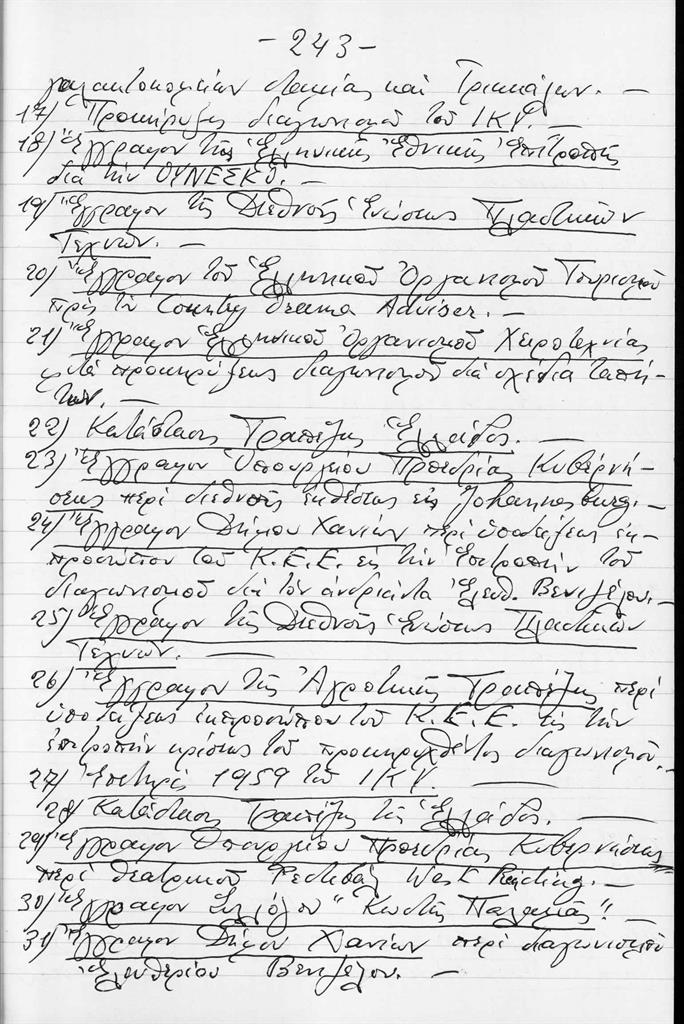 - 243 -
γαλακτοκομείων Λαμίας καὶ Τρικκάλων. —
17) Προκήρυξις διαγωνισμοῦ τοῦ ΙΚΥ. —
18) Ἔγγραφον τῆς Ἑλληνικῆς Ἐθνικῆς Ἐπιτροπῆς
διὰ τὴν ΟΥΝΕΣΚΟ. —
19) Ἔγγραφον τῆς Διεθνοῦς Ἑνώσεως Πλαστικῶν
Τεχνῶν. —
20) Ἔγγραφον τοῦ Ἑλληνικοῦ Ὀργανισμοῦ Τουρισμοῦ
πρὸς τὸν Country Drama Adviser. —
21) Ἔγγραφον Ἑλληνικοῦ Ὀργανισμοῦ Χειροτεχνίας
μετὰ προκηρύξεως διαγωνισμοῦ διὰ σχέδια ταπή-
των. —
22) Κατάστασις Τραπέζης Ἑλλάδος. —
23) Ἔγγραφον Ὑπουργείου Προεδρίας Κυβερνή-
σεως περὶ διεθνοῦς ἐκθέσεως εἰς Johannesburg. —
24) Ἔγγραφον Δήμου Χανίων περὶ ὑποδείξεως ἐκ-
προσώπου τοῦ Κ.Ε.Ε. εἰς τὴν ἐπιτροπὴν τοῦ
διαγωνισμοῦ διὰ τὸν ἀνδριάντα Ἐλευθ. Βενιζέλου. —
25) Ἔγγραφον τῆς Διεθνοῦς Ἑνώσεως Πλαστικῶν
Τεχνῶν. —
26) Ἔγγραφον τῆς Ἀγροτικῆς Τραπέζης περὶ
ὑποδείξεως ἐκπροσώπου τοῦ Κ.Ε.Ε. εἰς τὴν
ἐπιτροπὴν κρίσεως τοῦ προκηρυχθέντος διαγωνισμοῦ. —
27) Ἐπετηρὶς 1959 τοῦ ΙΚΥ. —
28) Κατάστασις Τραπέζης τῆς Ἑλλάδος. —
29) Ἔγγραφον Ὑπουργείου Προεδρίας Κυβερνήσεως
περὶ θεατρικοῦ Φεστιβὰλ West. —
30) Ἔγγραφον Συλλόγου "Κωστῆς Παλαμᾶς". —
31) Ἔγγραφον Δήμου Χανίων περὶ διαγωνισμοῦ
Ἐλευθερίου Βενιζέλου. —